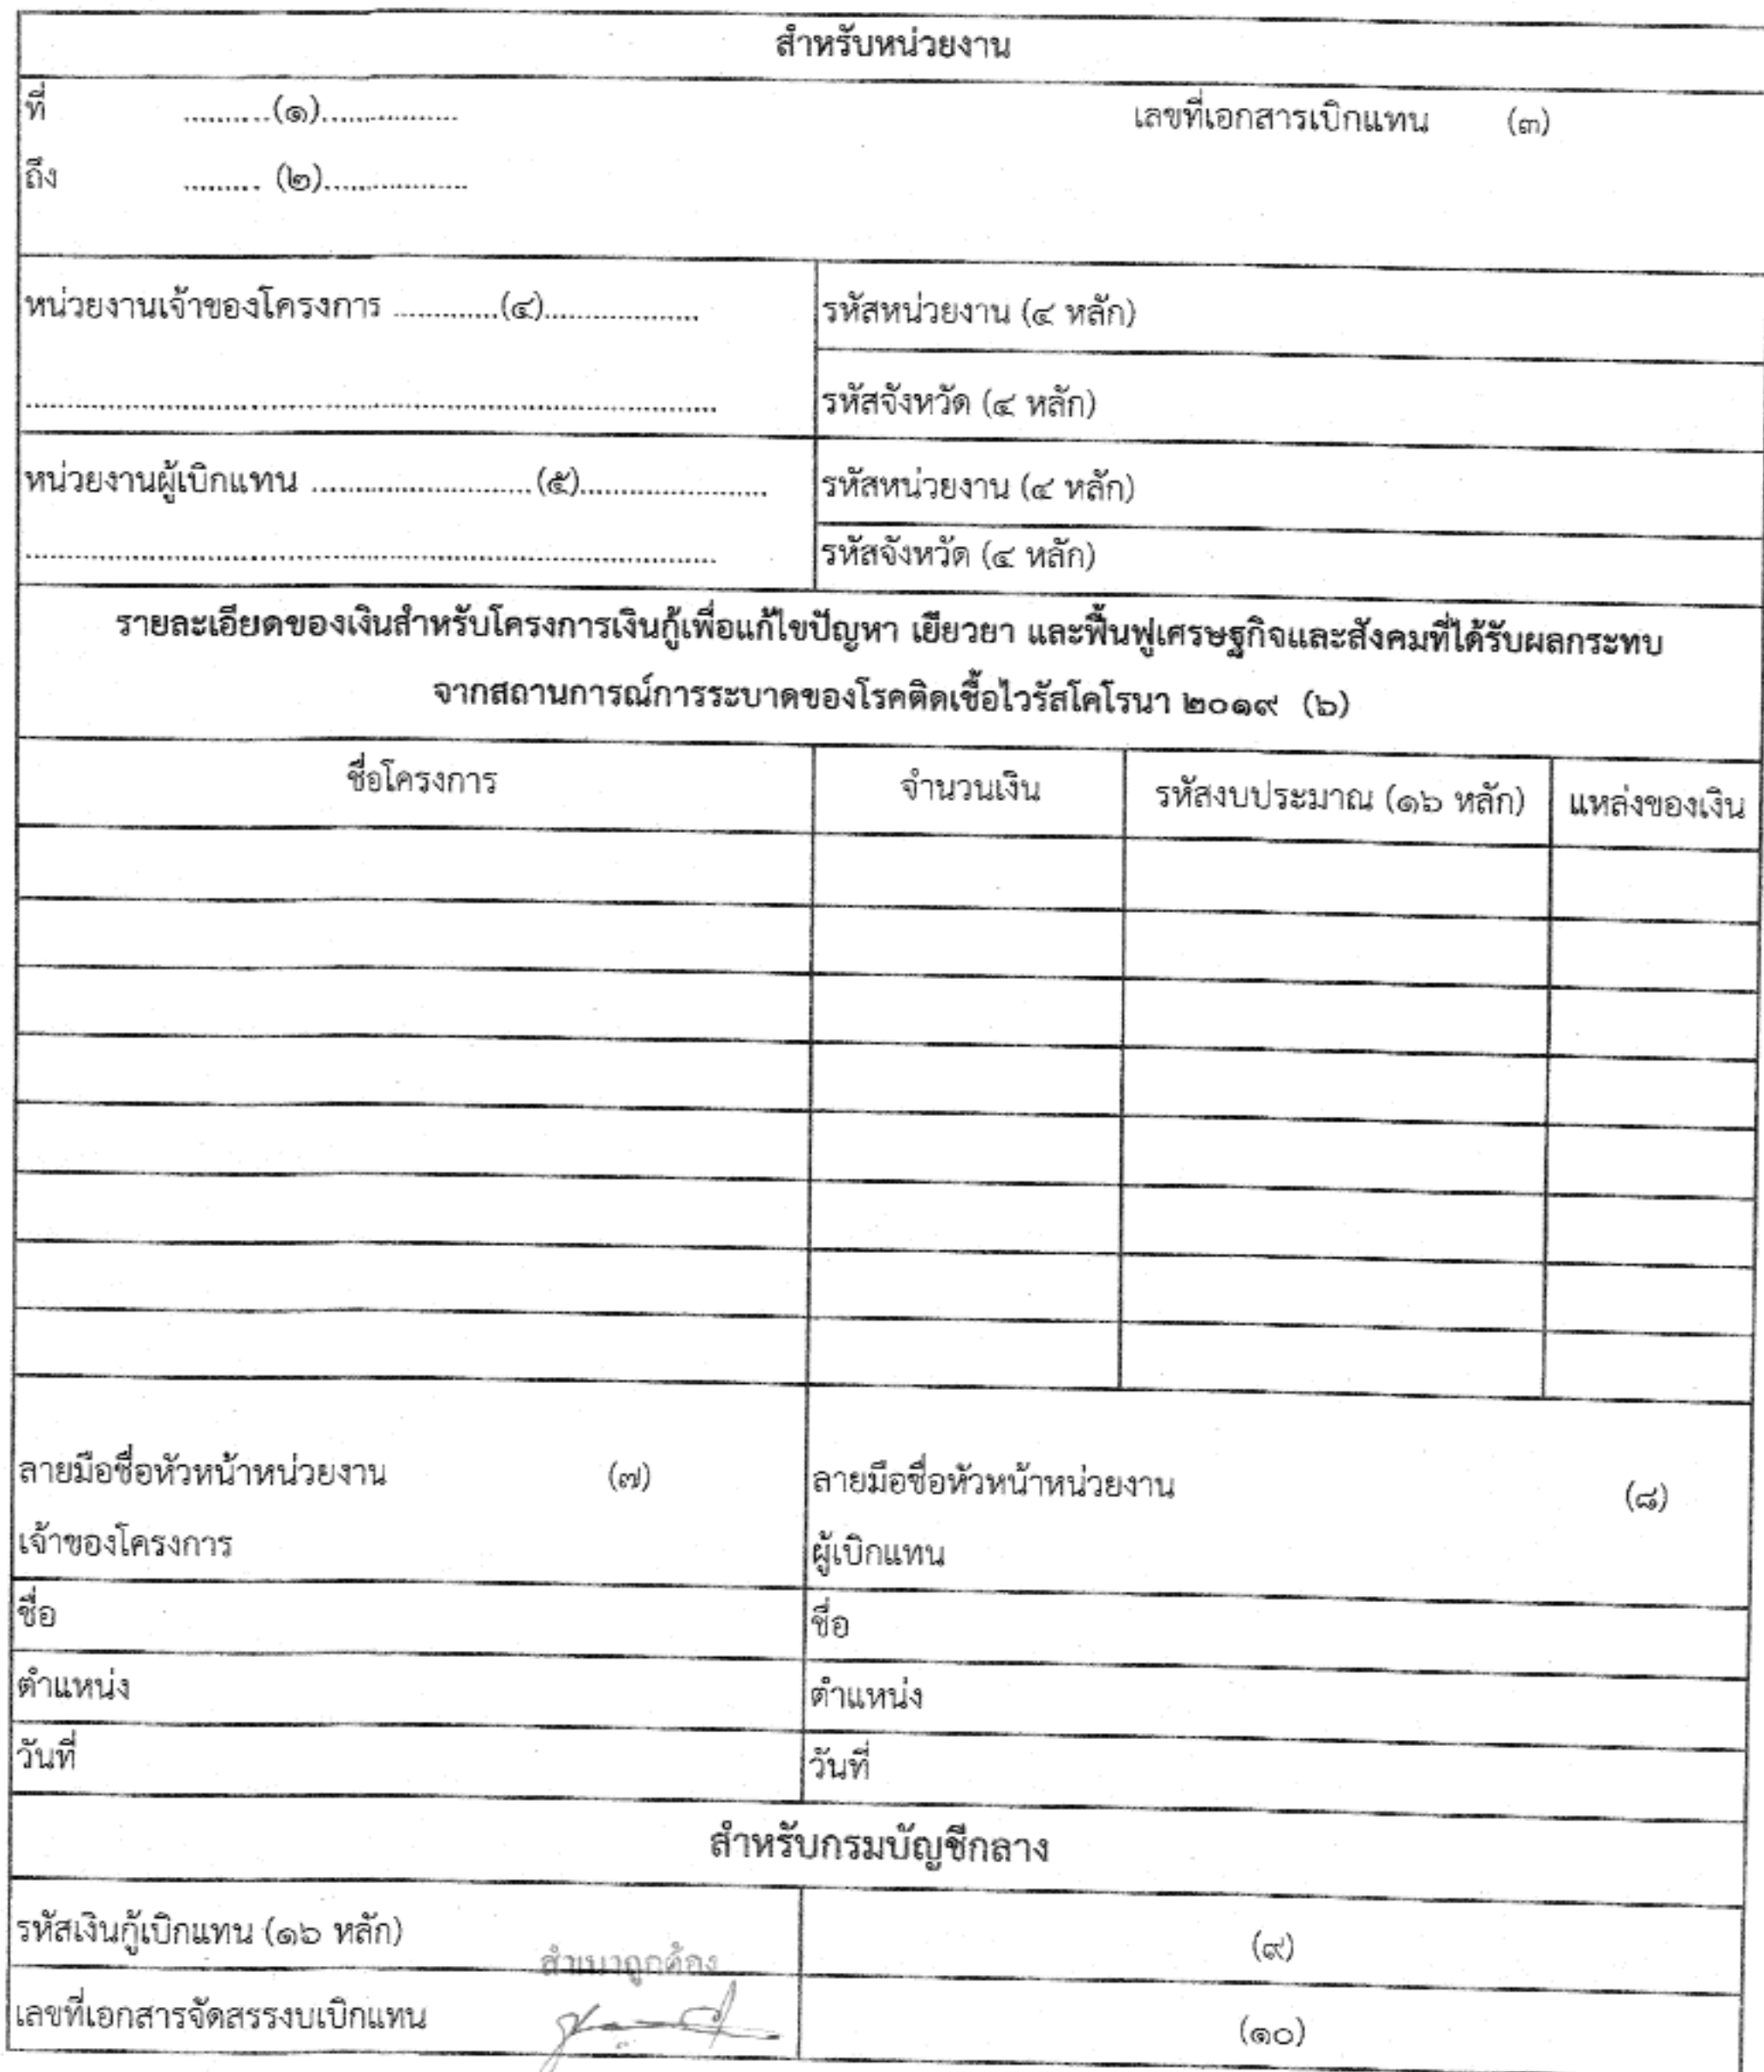 สำหรับหน่วยงาน
ที่ ..........(๑)................ เลขที่เอกสารเบิกแทน (๓)
ถึง ......... (๒).................
หน่วยงานเจ้าของโครงการ .............(๔)................... รหัสหน่วยงาน (๔ หลัก)
.................................................................................... รหัสจังหวัด (๔ หลัก)
หน่วยงานผู้เบิกแทน ...........................(๕)....................... รหัสหน่วยงาน (๔ หลัก)
.................................................................................... รหัสจังหวัด (๔ หลัก)
รายละเอียดของเงินสำหรับโครงการเงินกู้เพื่อแก้ไขปัญหา เยียวยา และฟื้นฟูเศรษฐกิจและสังคมที่ได้รับผลกระทบ
จากสถานการณ์การระบาดของโรคติดเชื้อไวรัสโคโรนา ๒๐๑๙ (๖)
ชื่อโครงการ จำนวนเงิน รหัสงบประมาณ (๑๖ หลัก) แหล่งของเงิน
ลายมือชื่อหัวหน้าหน่วยงาน (๗) ลายมือชื่อหัวหน้าหน่วยงาน (๘)
เจ้าของโครงการ ผู้เบิกแทน
ชื่อ ชื่อ
ตำแหน่ง ตำแหน่ง
วันที่ วันที่
สำหรับกรมบัญชีกลาง
รหัสเงินกู้เบิกแทน (๑๖ หลัก) (๙)
สำเนาถูกต้อง
เลขที่เอกสารจัดสรรงบเบิกแทน (๑๐)